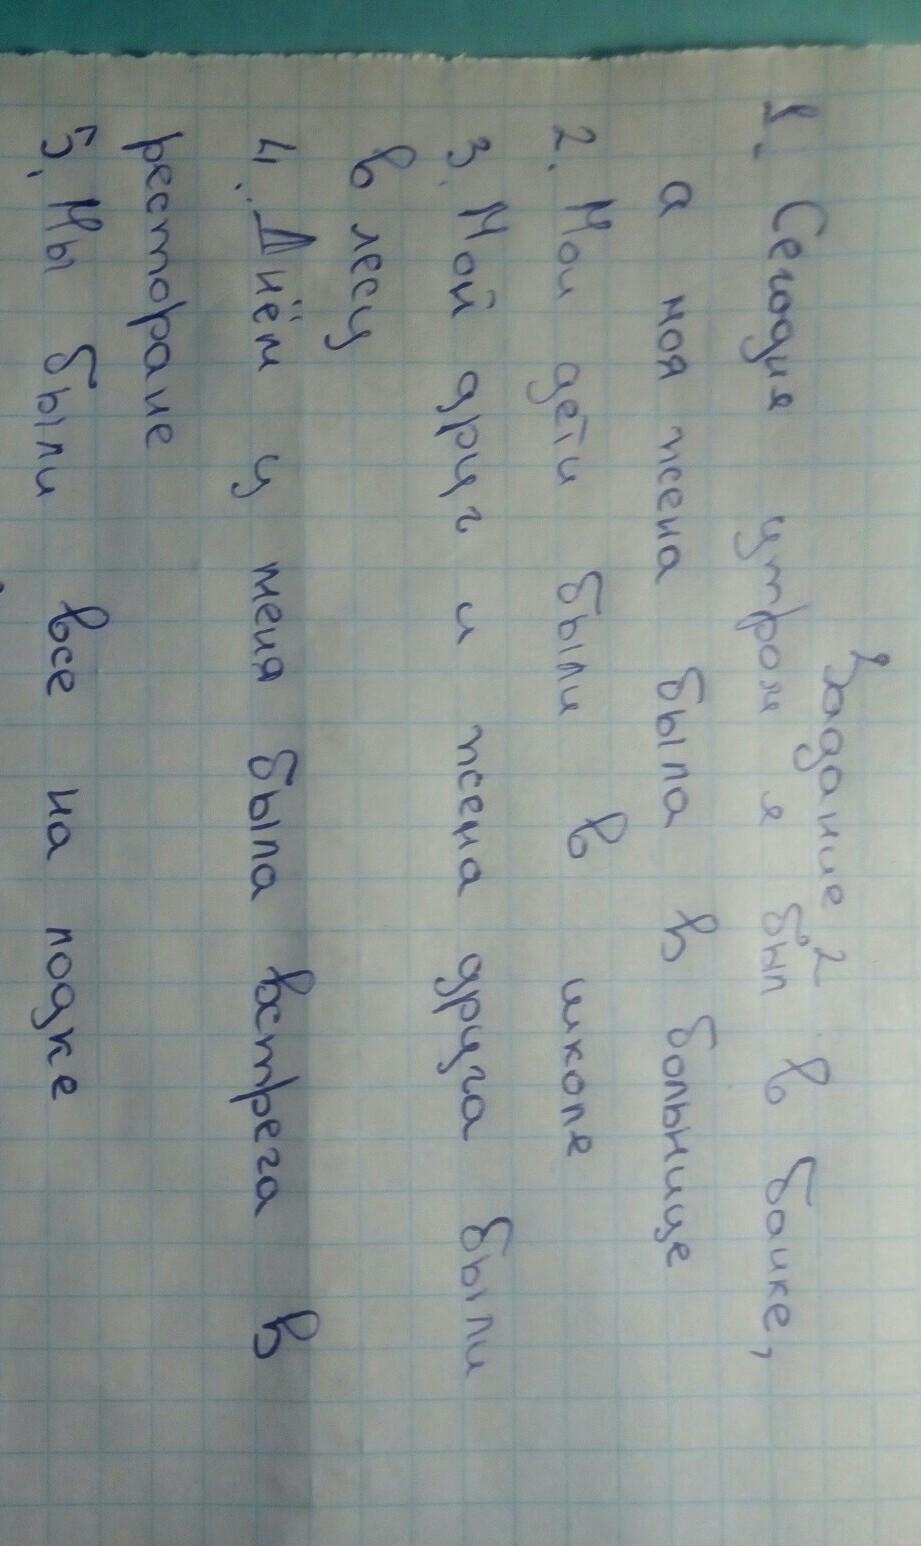 Задание 2
1. Сегодня утром я был в банке,
а моя жена была в больнице
2. Мои дети были в школе
3. Мой друг и жена друга были
в лесу
4. Днём у меня была встреча в
ресторане
5. Мы были все на лодке